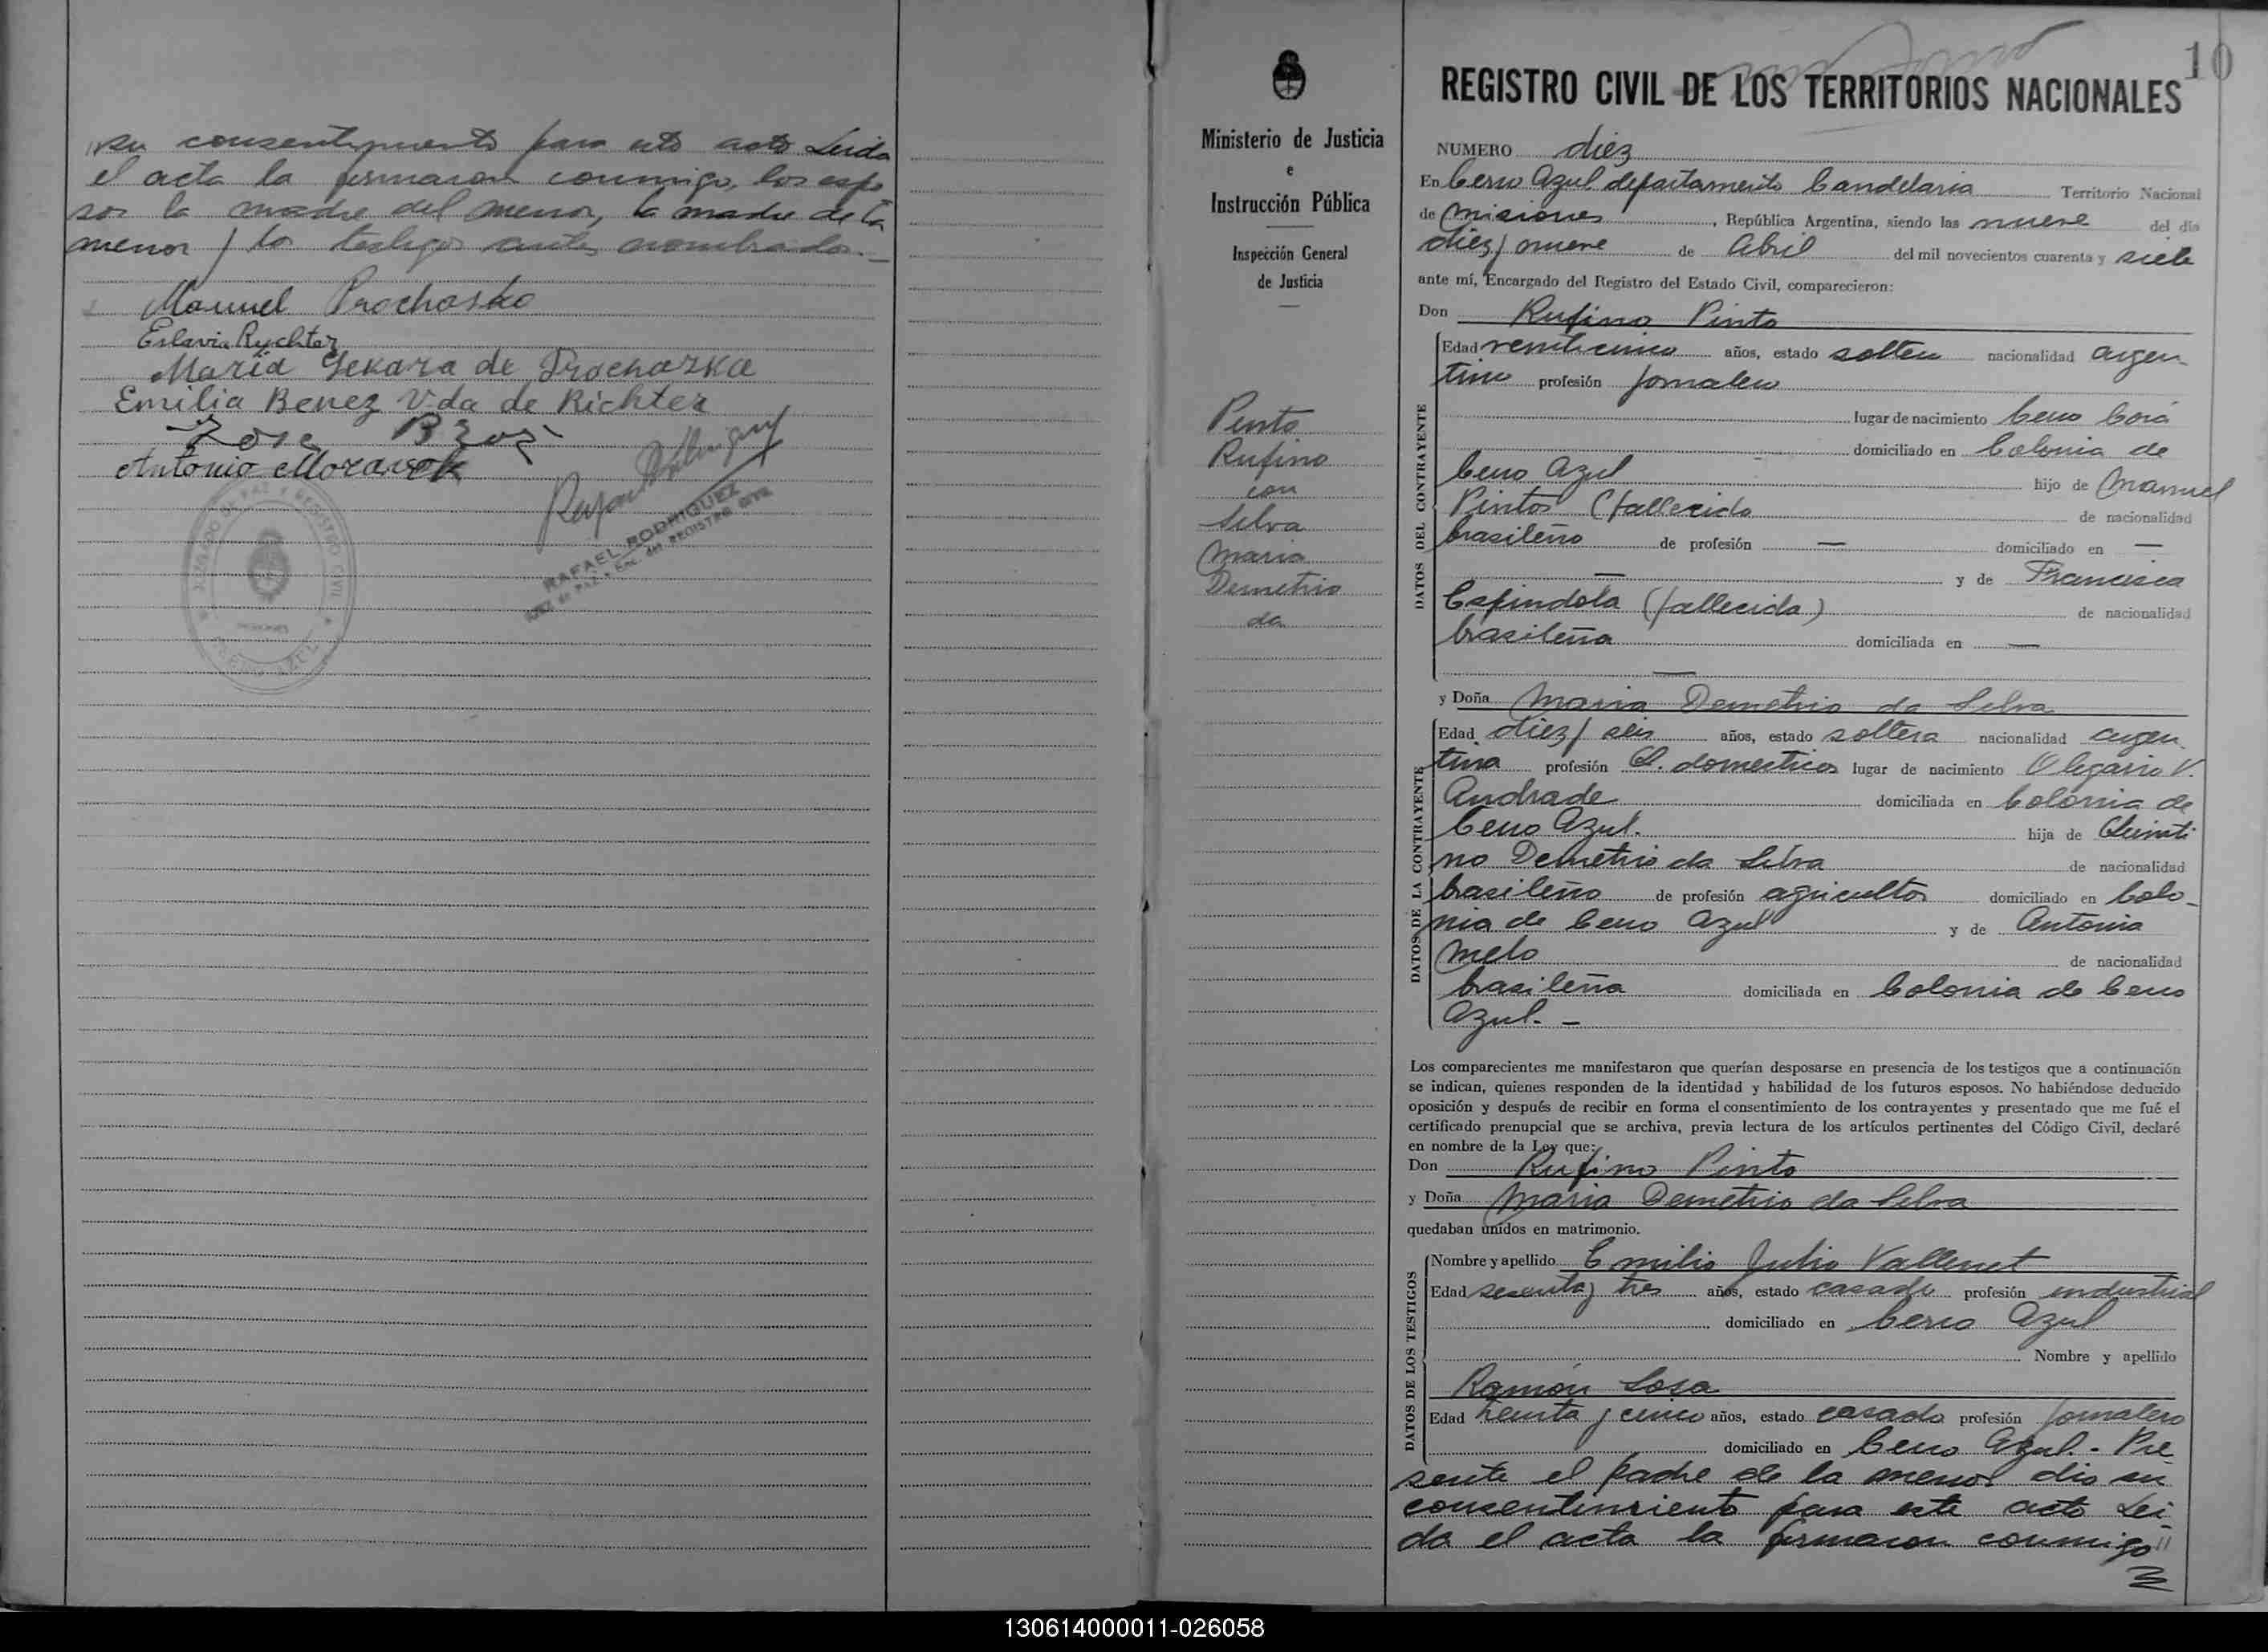 su consentimiento para este acto Leida
el acta la firmaron conmigo, los espo
sos la madre del menor, la madre de la
menor y los testigos antes nombrados.—
Manuel Prochasko
Eslavia Rychter
María Sekara de Prochazka
Emilia Benez Vda de Richter
José Broz
Antonio Moravek
RAFAEL RODRIGUEZ
JUEZ de PAZ y Enc. del REGISTRO CIVIL
JUZGADO DE PAZ Y REGISTRO CIVIL
MISIONES
CERRO AZUL
10
Ministerio de Justicia
e
Instrucción Pública
Inspección General
de Justicia
Pinto
Rufino
con
Silva
Maria
Demetrio
da
REGISTRO CIVIL DE LOS TERRITORIOS NACIONALES
NUMERO diez
En Cerro Azul departamento Candelaria Territorio Nacional
de Misiones, República Argentina, siendo las nueve del día
diez y nueve de Abril del mil novecientos cuarenta y siete
ante mí, Encargado del Registro del Estado Civil, comparecieron:
Don Rufino Pinto
DATOS DEL CONTRAYENTE
Edad veinticinco años, estado soltero nacionalidad argen
tino profesión jornalero
lugar de nacimiento Cerro Corá
domiciliado en Colonia de
Cerro Azul hijo de Manuel
Pintos (fallecido de nacionalidad
brasileño de profesión — domiciliado en —
— y de Francisca
Espindola (fallecida) de nacionalidad
brasileña domiciliada en —
—
y Doña Maria Demetrio da Silva
DATOS DE LA CONTRAYENTE
Edad diez y seis años, estado soltera nacionalidad argen
tina profesión Q. domesticos lugar de nacimiento Olegario V.
Andrade domiciliada en Colonia de
Cerro Azul. hija de Quinti
no Demetrio da Silva de nacionalidad
brasileño de profesión agricultor domiciliado en Colo-
nia de Cerro Azul y de Antonia
Melo de nacionalidad
brasileña domiciliada en Colonia de Cerro
Azul.—
Los comparecientes me manifestaron que querían desposarse en presencia de los testigos que a continuación
se indican, quienes responden de la identidad y habilidad de los futuros esposos. No habiéndose deducido
oposición y después de recibir en forma el consentimiento de los contrayentes y presentado que me fué el
certificado prenupcial que se archiva, previa lectura de los artículos pertinentes del Código Civil, declaré
en nombre de la Ley que:
Don Rufino Pinto
y Doña Maria Demetrio da Silva
quedaban unidos en matrimonio.
DATOS DE LOS TESTIGOS
Nombre y apellido Emilio Julio Vallenet
Edad sesenta y tres años, estado casado profesión industrial
domiciliado en Cerro Azul
Nombre y apellido
Ramón Sosa
Edad treinta y cinco años, estado casado profesión jornalero
domiciliado en Cerro Azul.- Pre
sente el padre de la menor dio su
consentimiento para este acto Lei
da el acta la firmaron conmigo //
130614000011-026058